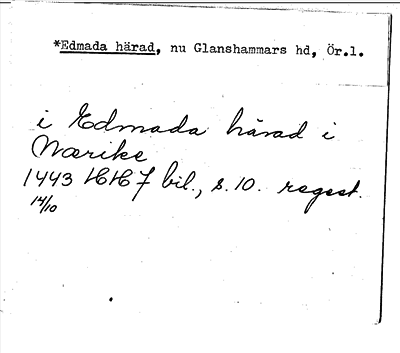 *Edmada härad, nu Glanshammars hd, Ör.l.
i Edmada härad i
Nærike
1443 HH 7 bil., s. 10. regest.
14/10